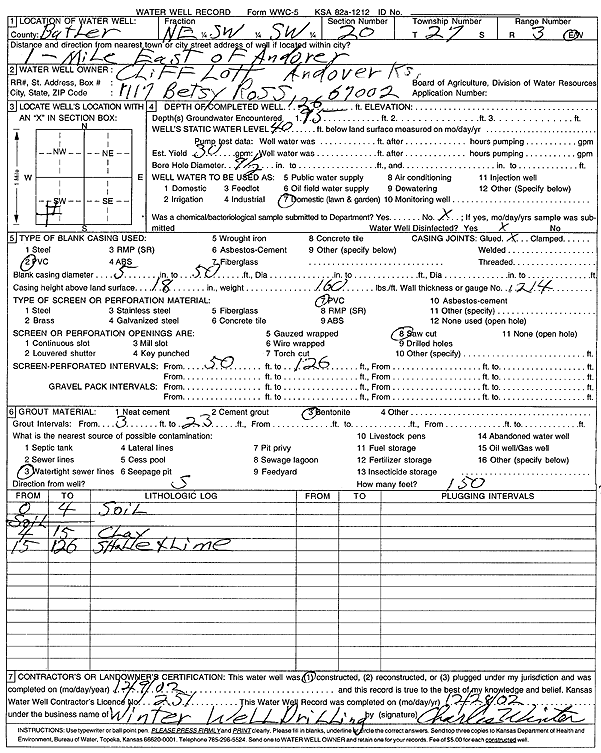 WATER WELL RECORD Form WWC-5 KSA 82a-1212 ID No.
1 LOCATION OF WATER WELL: Fraction Section Number Township Number Range Number
County: Butler NE ¼ SW ¼ SW ¼ 20 T 27 S R 3 E/W
Distance and direction from nearest town or city street address of well if located within city?
1 - Mile East of Andover
2 WATER WELL OWNER: Cliff Lott Andover Ks,
RR#, St. Address, Box # : 1117 Betsy Ross 67002 Board of Agriculture, Division of Water Resources
City, State, ZIP Code : Application Number:
3 LOCATE WELL'S LOCATION WITH AN "X" IN SECTION BOX:
N
NW NE
W E
SW SE
S
1 Mile
4 DEPTH OF COMPLETED WELL 126 ft. ELEVATION:
Depth(s) Groundwater Encountered 1. 75 ft. 2. ft. 3. ft.
WELL'S STATIC WATER LEVEL 40 ft. below land surface measured on mo/day/yr
Pump test data: Well water was ft. after hours pumping gpm
Est. Yield 30 gpm: Well water was ft. after hours pumping gpm
Bore Hole Diameter 9 1/2 in. to ft., and in. to ft.
WELL WATER TO BE USED AS: 5 Public water supply 8 Air conditioning 11 Injection well
1 Domestic 3 Feedlot 6 Oil field water supply 9 Dewatering 12 Other (Specify below)
2 Irrigation 4 Industrial 7 Domestic (lawn & garden) 10 Monitoring well
Was a chemical/bacteriological sample submitted to Department? Yes No X ; If yes, mo/day/yrs sample was submitted
Water Well Disinfected? Yes X No
5 TYPE OF BLANK CASING USED: 5 Wrought iron 8 Concrete tile CASING JOINTS: Glued X Clamped
1 Steel 3 RMP (SR) 6 Asbestos-Cement 9 Other (specify below) Welded
2 PVC 4 ABS 7 Fiberglass Threaded
Blank casing diameter 5 in. to 50 ft., Dia in. to ft., Dia in. to ft.
Casing height above land surface 18 in., weight 160 lbs./ft. Wall thickness or gauge No. .214
TYPE OF SCREEN OR PERFORATION MATERIAL: 7 PVC 10 Asbestos-cement
1 Steel 3 Stainless steel 5 Fiberglass 8 RMP (SR) 11 Other (specify)
2 Brass 4 Galvanized steel 6 Concrete tile 9 ABS 12 None used (open hole)
SCREEN OR PERFORATION OPENINGS ARE: 5 Gauzed wrapped 8 Saw cut 11 None (open hole)
1 Continuous slot 3 Mill slot 6 Wire wrapped 9 Drilled holes
2 Louvered shutter 4 Key punched 7 Torch cut 10 Other (specify)
SCREEN-PERFORATED INTERVALS: From 50 ft. to 126 ft., From ft. to ft.
From ft. to ft., From ft. to ft.
GRAVEL PACK INTERVALS: From ft. to ft., From ft. to ft.
From ft. to ft., From ft. to ft.
6 GROUT MATERIAL: 1 Neat cement 2 Cement grout 3 Bentonite 4 Other
Grout Intervals: From 3 ft. to 23 ft., From ft. to ft., From ft. to ft.
What is the nearest source of possible contamination: 10 Livestock pens 14 Abandoned water well
1 Septic tank 4 Lateral lines 7 Pit privy 11 Fuel storage 15 Oil well/Gas well
2 Sewer lines 5 Cess pool 8 Sewage lagoon 12 Fertilizer storage 16 Other (specify below)
3 Watertight sewer lines 6 Seepage pit 9 Feedyard 13 Insecticide storage
Direction from well? S How many feet? 150
FROM TO LITHOLOGIC LOG FROM TO PLUGGING INTERVALS
0 4 Soil
Soil
4 15 Clay
15 126 Shale & Lime
7 CONTRACTOR'S OR LANDOWNER'S CERTIFICATION: This water well was (1) constructed, (2) reconstructed, or (3) plugged under my jurisdiction and was
completed on (mo/day/year) 12/9/02 and this record is true to the best of my knowledge and belief. Kansas
Water Well Contractor's Licence No. 251 This Water Well Record was completed on (mo/day/yr) 12/28/02
under the business name of Winter Well Drilling by (signature) Charles Winter
INSTRUCTIONS: Use typewriter or ball point pen. PLEASE PRESS FIRMLY and PRINT clearly. Please fill in blanks, underline or circle the correct answers. Send top three copies to Kansas Department of Health and
Environment, Bureau of Water, Topeka, Kansas 66620-0001. Telephone 785-296-5524. Send one to WATER WELL OWNER and retain one for your records. Fee of $5.00 for each constructed well.